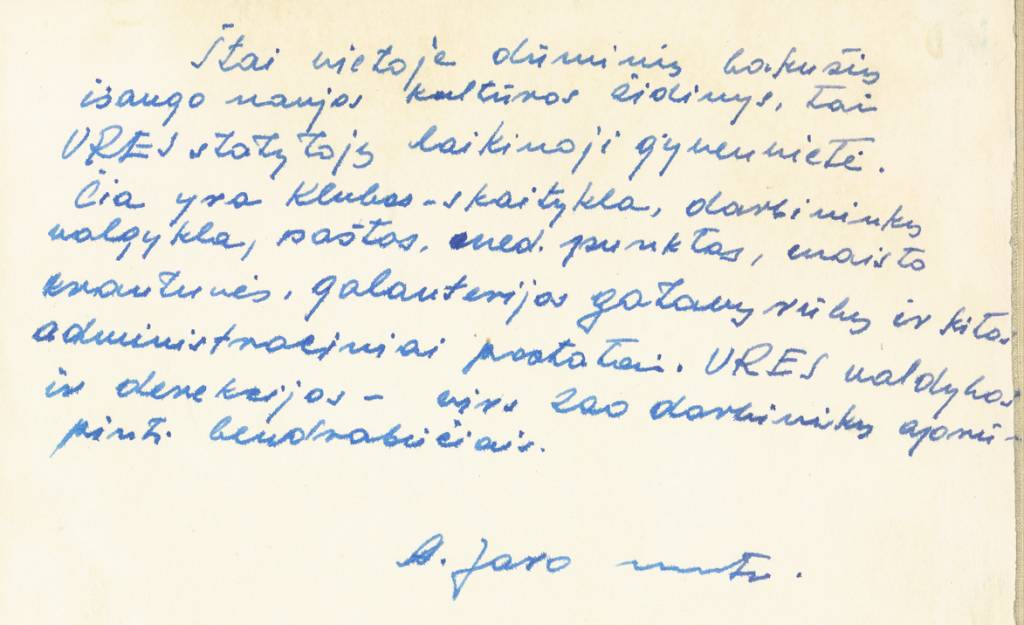 Štai vietoje dūminių bakūžių
išaugo naujos kultūros židinys, tai
VRES statytojų laikinoji gyvenvietė.
Čia yra klubas-skaitykla, darbininkų
valgykla, paštas, med. punktas, maisto
krautuvės, galanterijos gatavų rūbų ir kitas
administraciniai pastatai. VRES valdybos
ir derekcijos - virs 200 darbininkų aprū-
pinti bendrabučiais.
A. Jaro